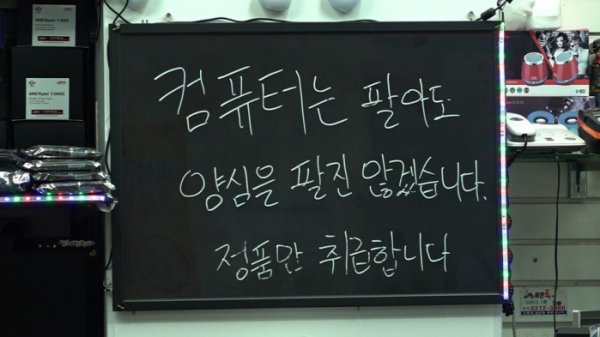 컴퓨터는 팔아도
양심을 팔진 않겠습니다.
정품만 취급합니다
AMD Ryzen
AMD Ryzen